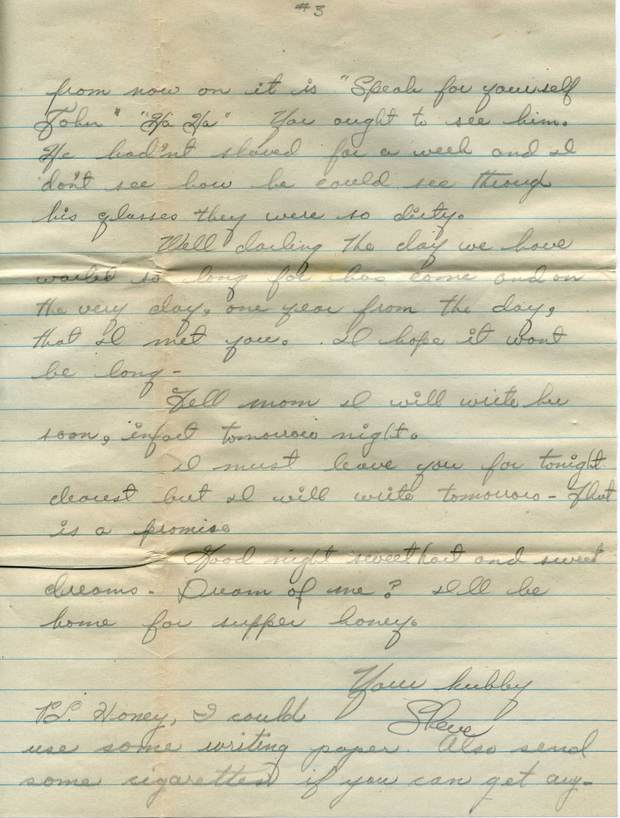 #3
from now on it is "Speak for yourself
John" "Ha Ha" You ought to see him.
He had'nt shaved for a week and I
don't see how he could see through
his glasses they were so dirty.
Well darling the day we have
waited so long for has come and on
the very day, one year from the day,
that I met you. I hope it wont
be long -
Tell mom I will write her
soon, infact tomorrow night.
I must leave you for tonight
dearest but I will write tomorrow - That
is a promise
Good night sweethart and sweet
dreams. Dream of me? I'll be
home for supper honey.
Your hubby
Steve
P.S. Honey, I could
use some writing paper. Also send
some cigarettes if you can get any-